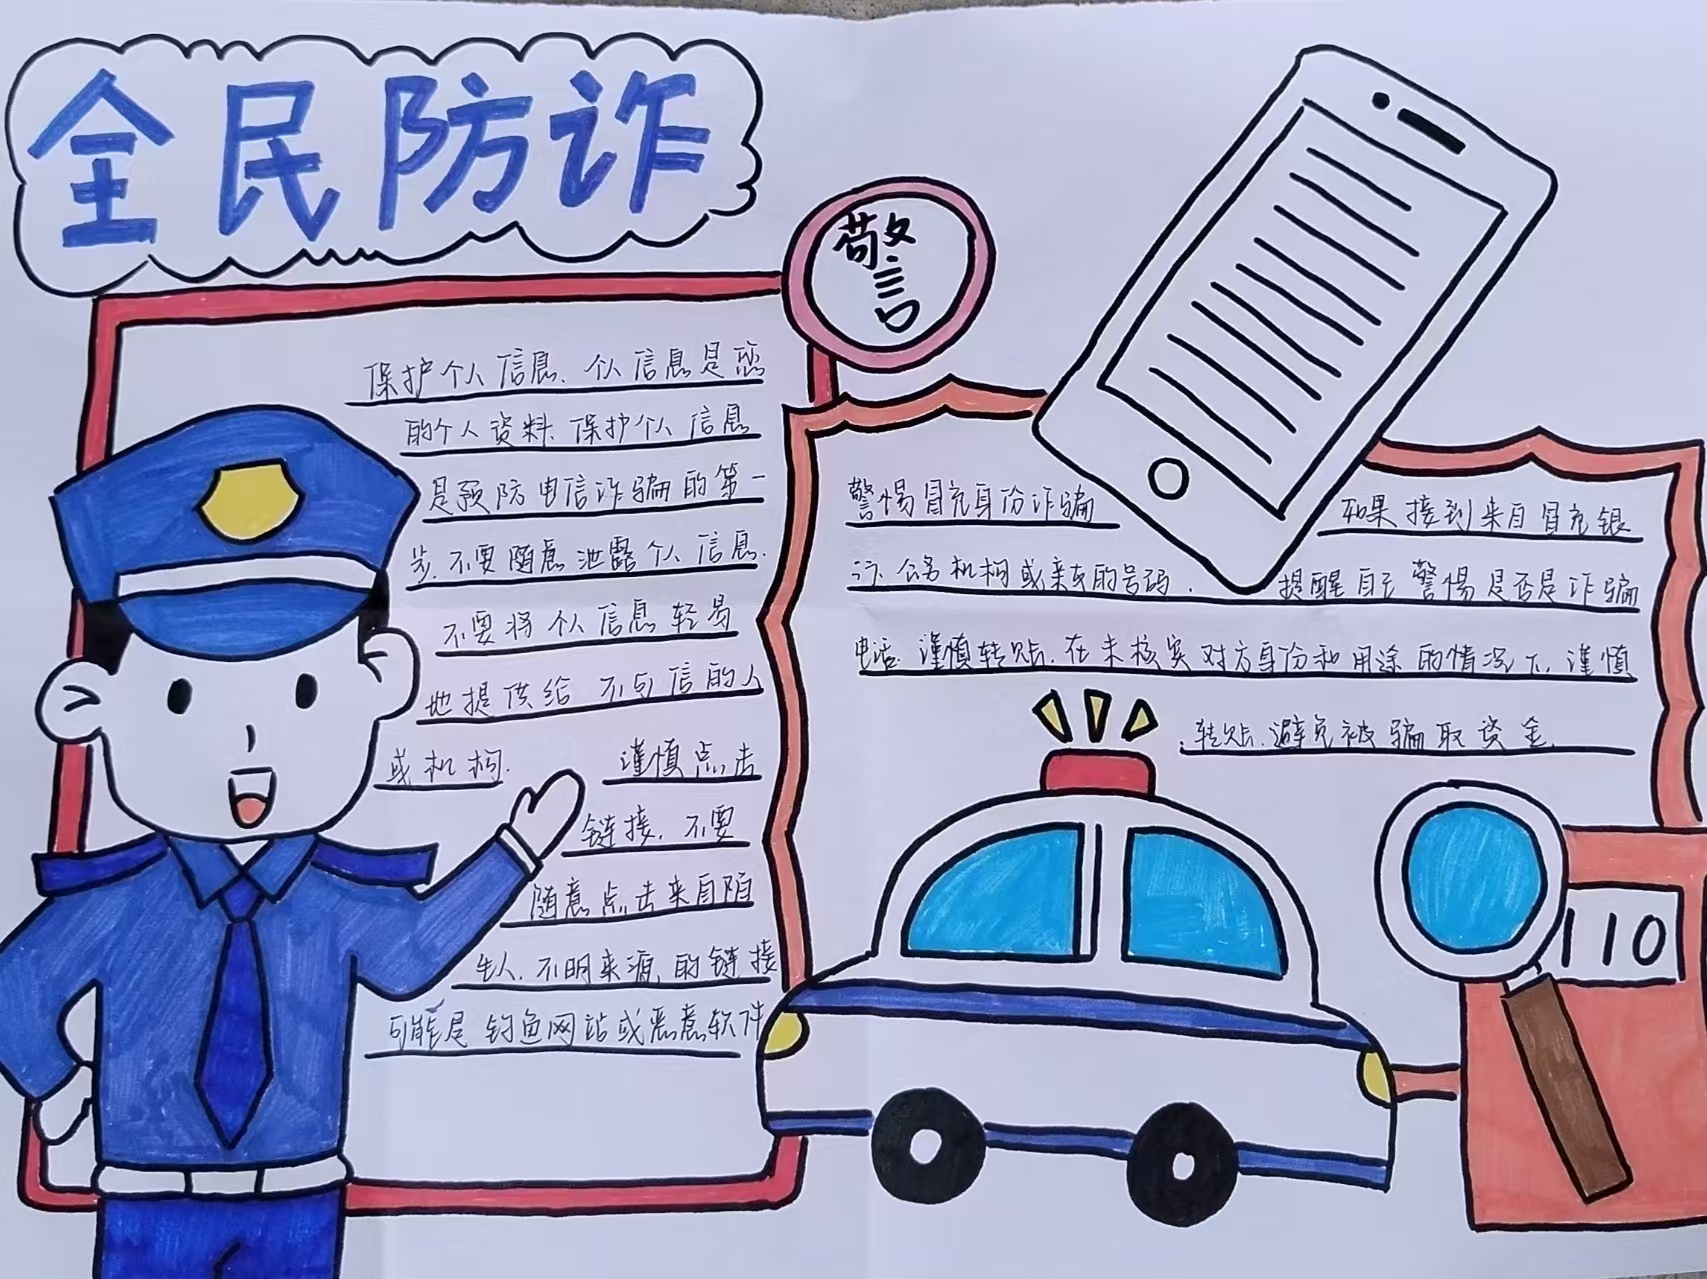 全民防诈
警
保护个人信息、个人信息是您
的个人资料、保护个人信息
是预防电信诈骗的第一
步、不要随意泄露个人信息、
不要将个人信息轻易
地提供给不可信的人
或机构. 谨慎点击
链接、不要
随意点击来自陌
生人、不明来源的链接
可能是钓鱼网站或恶意软件
警惕冒充身份诈骗 如果接到来自冒充银
行、公务机构或亲友的号码. 提醒自己警惕是否是诈骗
电话. 谨慎转账、在未核实对方身份和用途的情况下、谨慎
转账、避免被骗取资金.
110